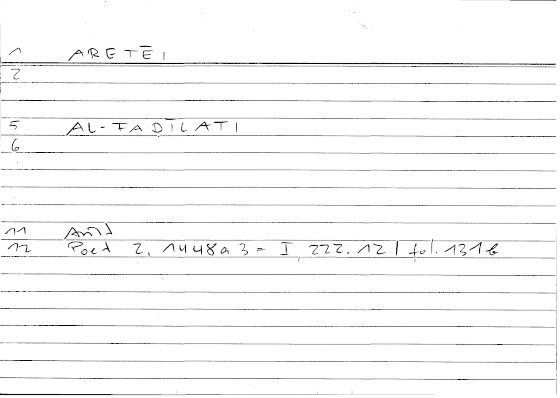 1 ARETĒI
2
5 AL-FADĪLATI
6
11 Arist
12 Poet 2, 1448a3 = I, 222.12 | fol. 131b